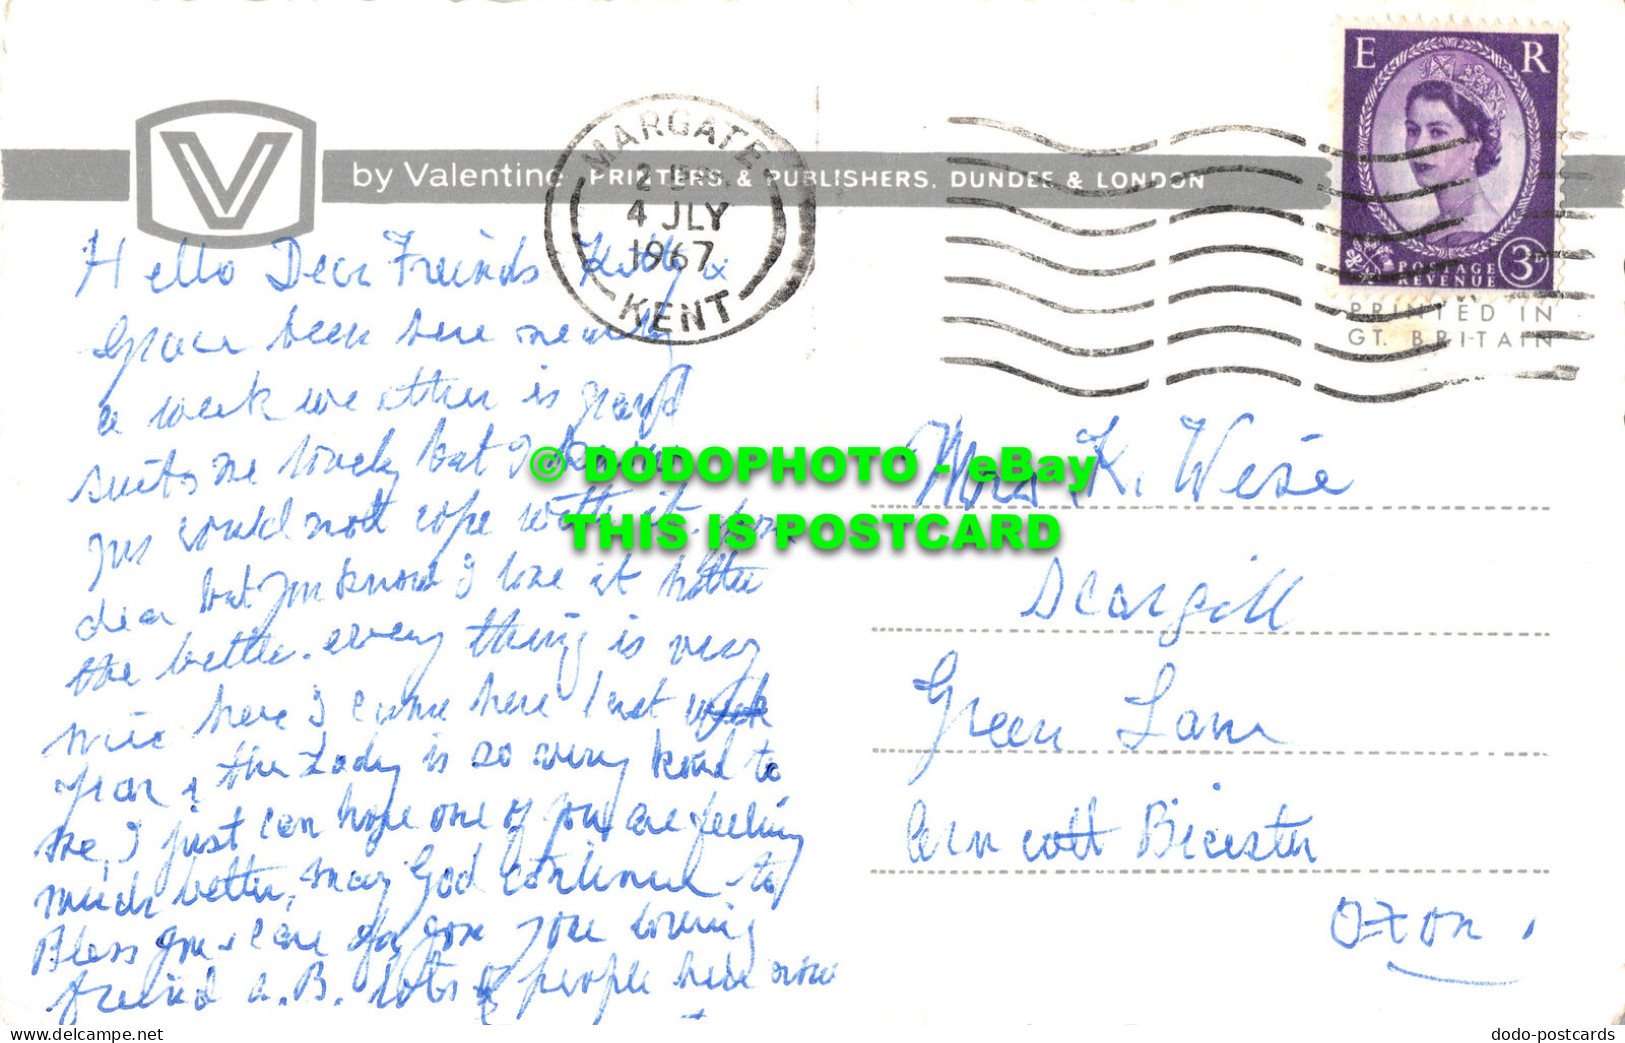 V by Valentine PRINTERS & PUBLISHERS, DUNDEE & LONDON
MARGATE
4 JLY
1967
KENT
E R
POSTAGE
REVENUE 3D
PRINTED IN
GT. BRITAIN
Hello Dear Freinds Kitty &
Grace been here nearly
a week weather is grand
suits me lovely but I know
you would not cope with it.
dear but you know I love it hotter
the better. every thing is very
nice here I came here last week
year & the Lady is so very kind to
me, I just can hope one of you are feeling
much better, may God continue to
Bless you & care for you your loving
freind a.B. lots of people here now
Mrs K. Wise
Scargill
Green Lane
Arncott Bicester
Oxon.
© DODOPHOTO - eBay
THIS IS POSTCARD
Visit our website: http://www.dodo-postcards.delcampe.com
dodo-postcards